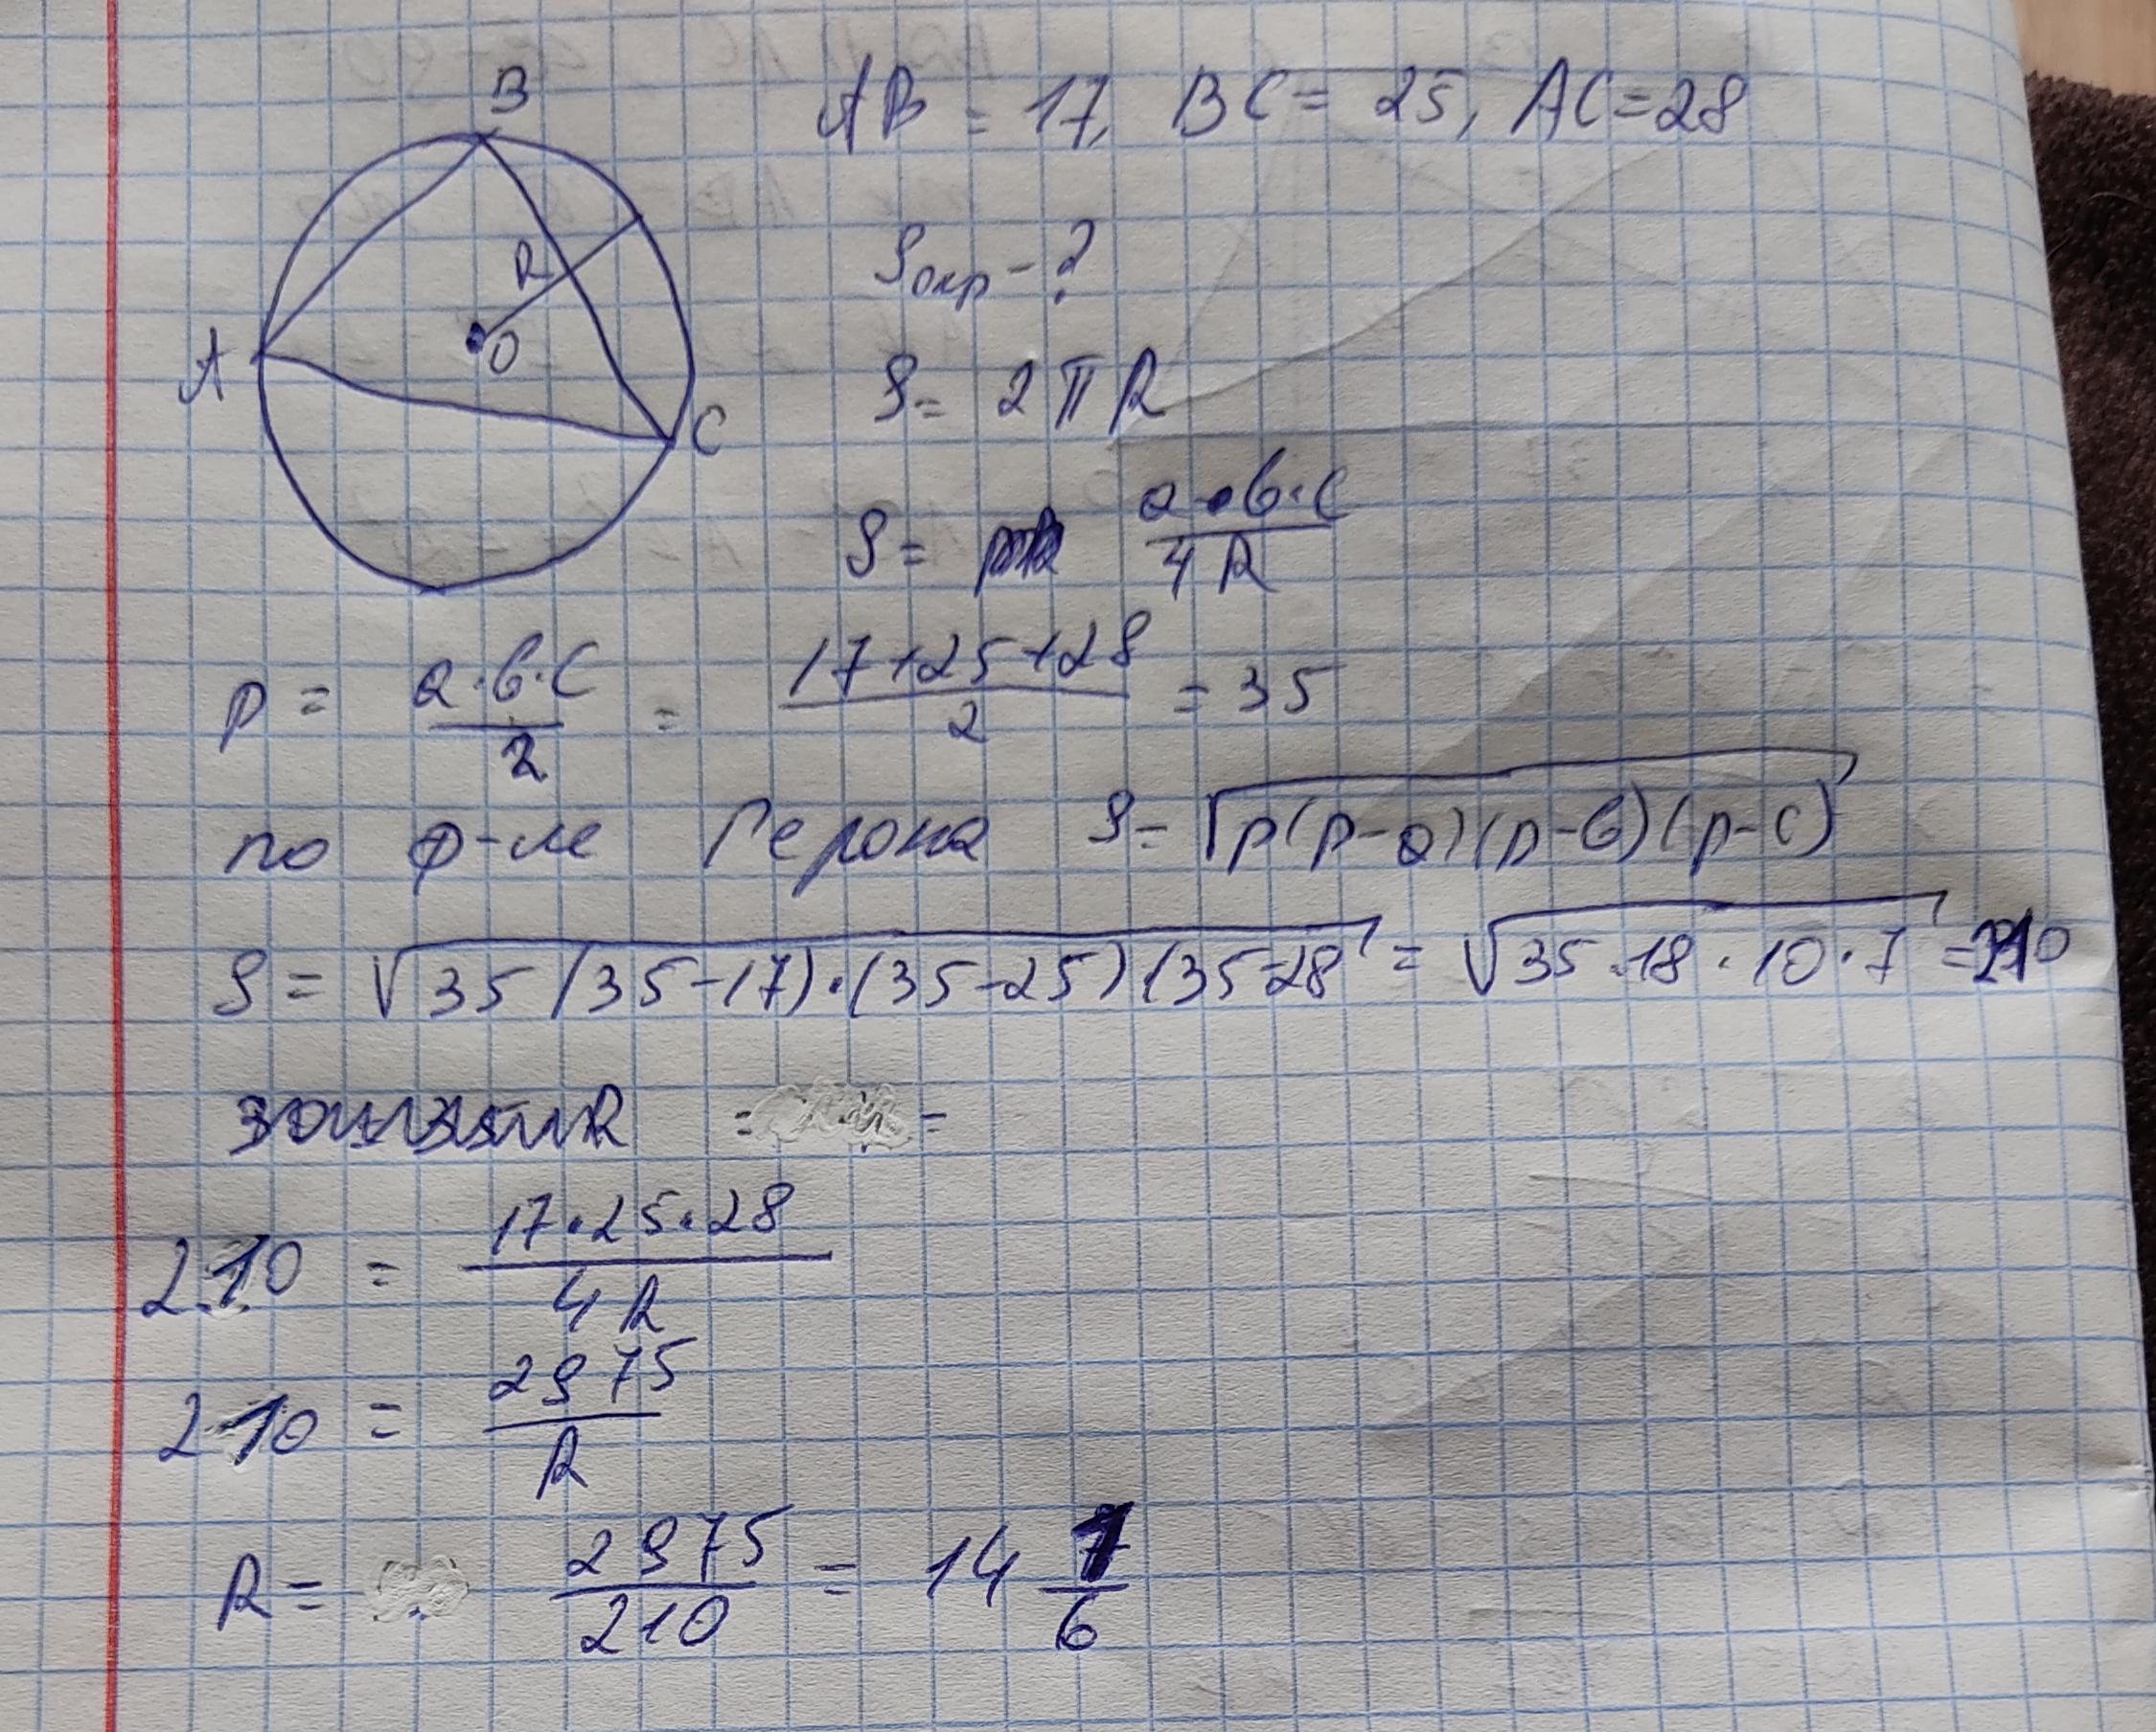 B
AB = 17, BC = 25, AC = 28
R
Sокр - ?
O
A
S = 2πR
C
S = a·b·c / 4R
p = a·b·c / 2 = 17+25+28 / 2 = 35
по ф-ле Герона S = √p(p-a)(p-b)(p-c)
S = √35(35-17)·(35-25)(35-28 = √35·18·10·7 = 210
= =
210 = 17·25·28 / 4R
210 = 2975 / R
R = 2975 / 210 = 14 1/6